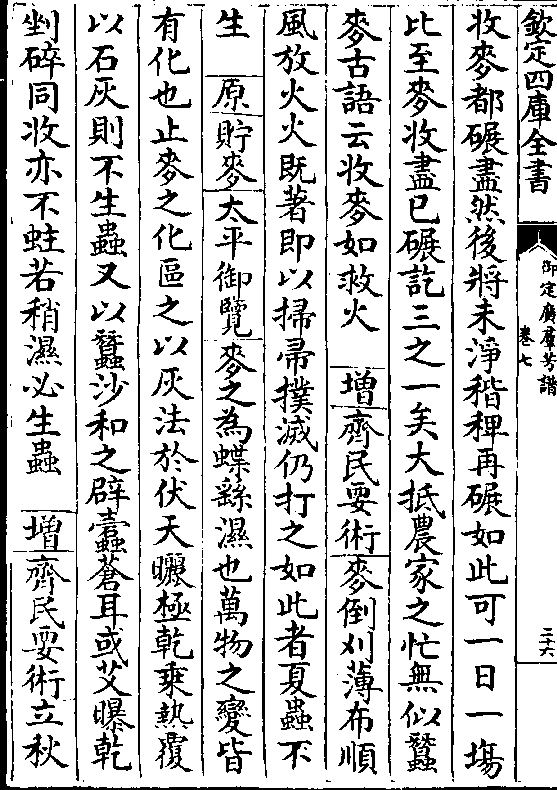 欽定四庫全書
御定廣羣芳譜
卷七
三十六
收麥都碾盡然後將未淨稭稗再碾如此可一日一場
比至麥收盡已碾訖三之一矣大抵農家之忙無似蠶
麥古語云收麥如救火 増齊民要術麥倒刈薄布順
風放火火既著即以掃帚撲滅仍打之如此者夏蟲不
生 原貯麥太平御覽麥之為蝶繇濕也萬物之變皆
有化也止麥之化區之以灰法於伏天曬極乾乗熱覆
以石灰則不生蟲又以蠶沙和之辟蠧蒼耳或艾曝乾
剉碎同收亦不蛀若稍濕必生蟲 増齊民要術立秋